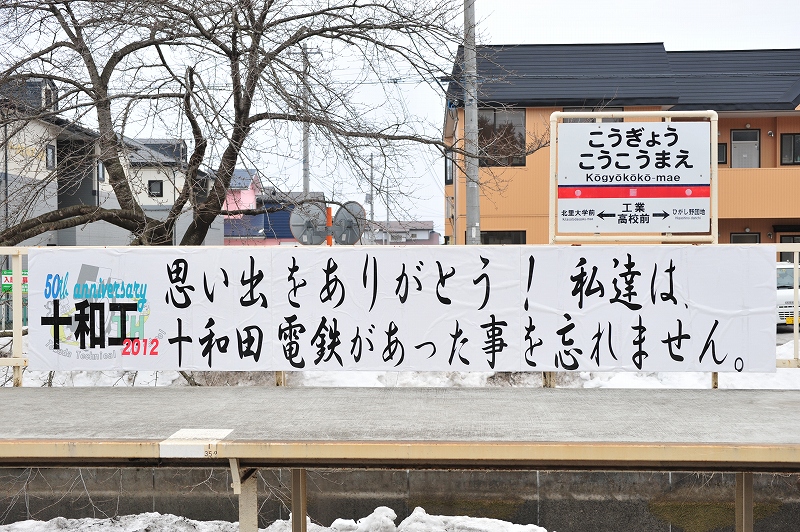 こうぎょう
こうこうまえ
Kōgyōkōkō-mae
北里大学前
工業
高校前
ひがし野団地
50th anniversary
十和工
2012
思い出をありがとう！私達は、
十和田電鉄があった事を忘れません。